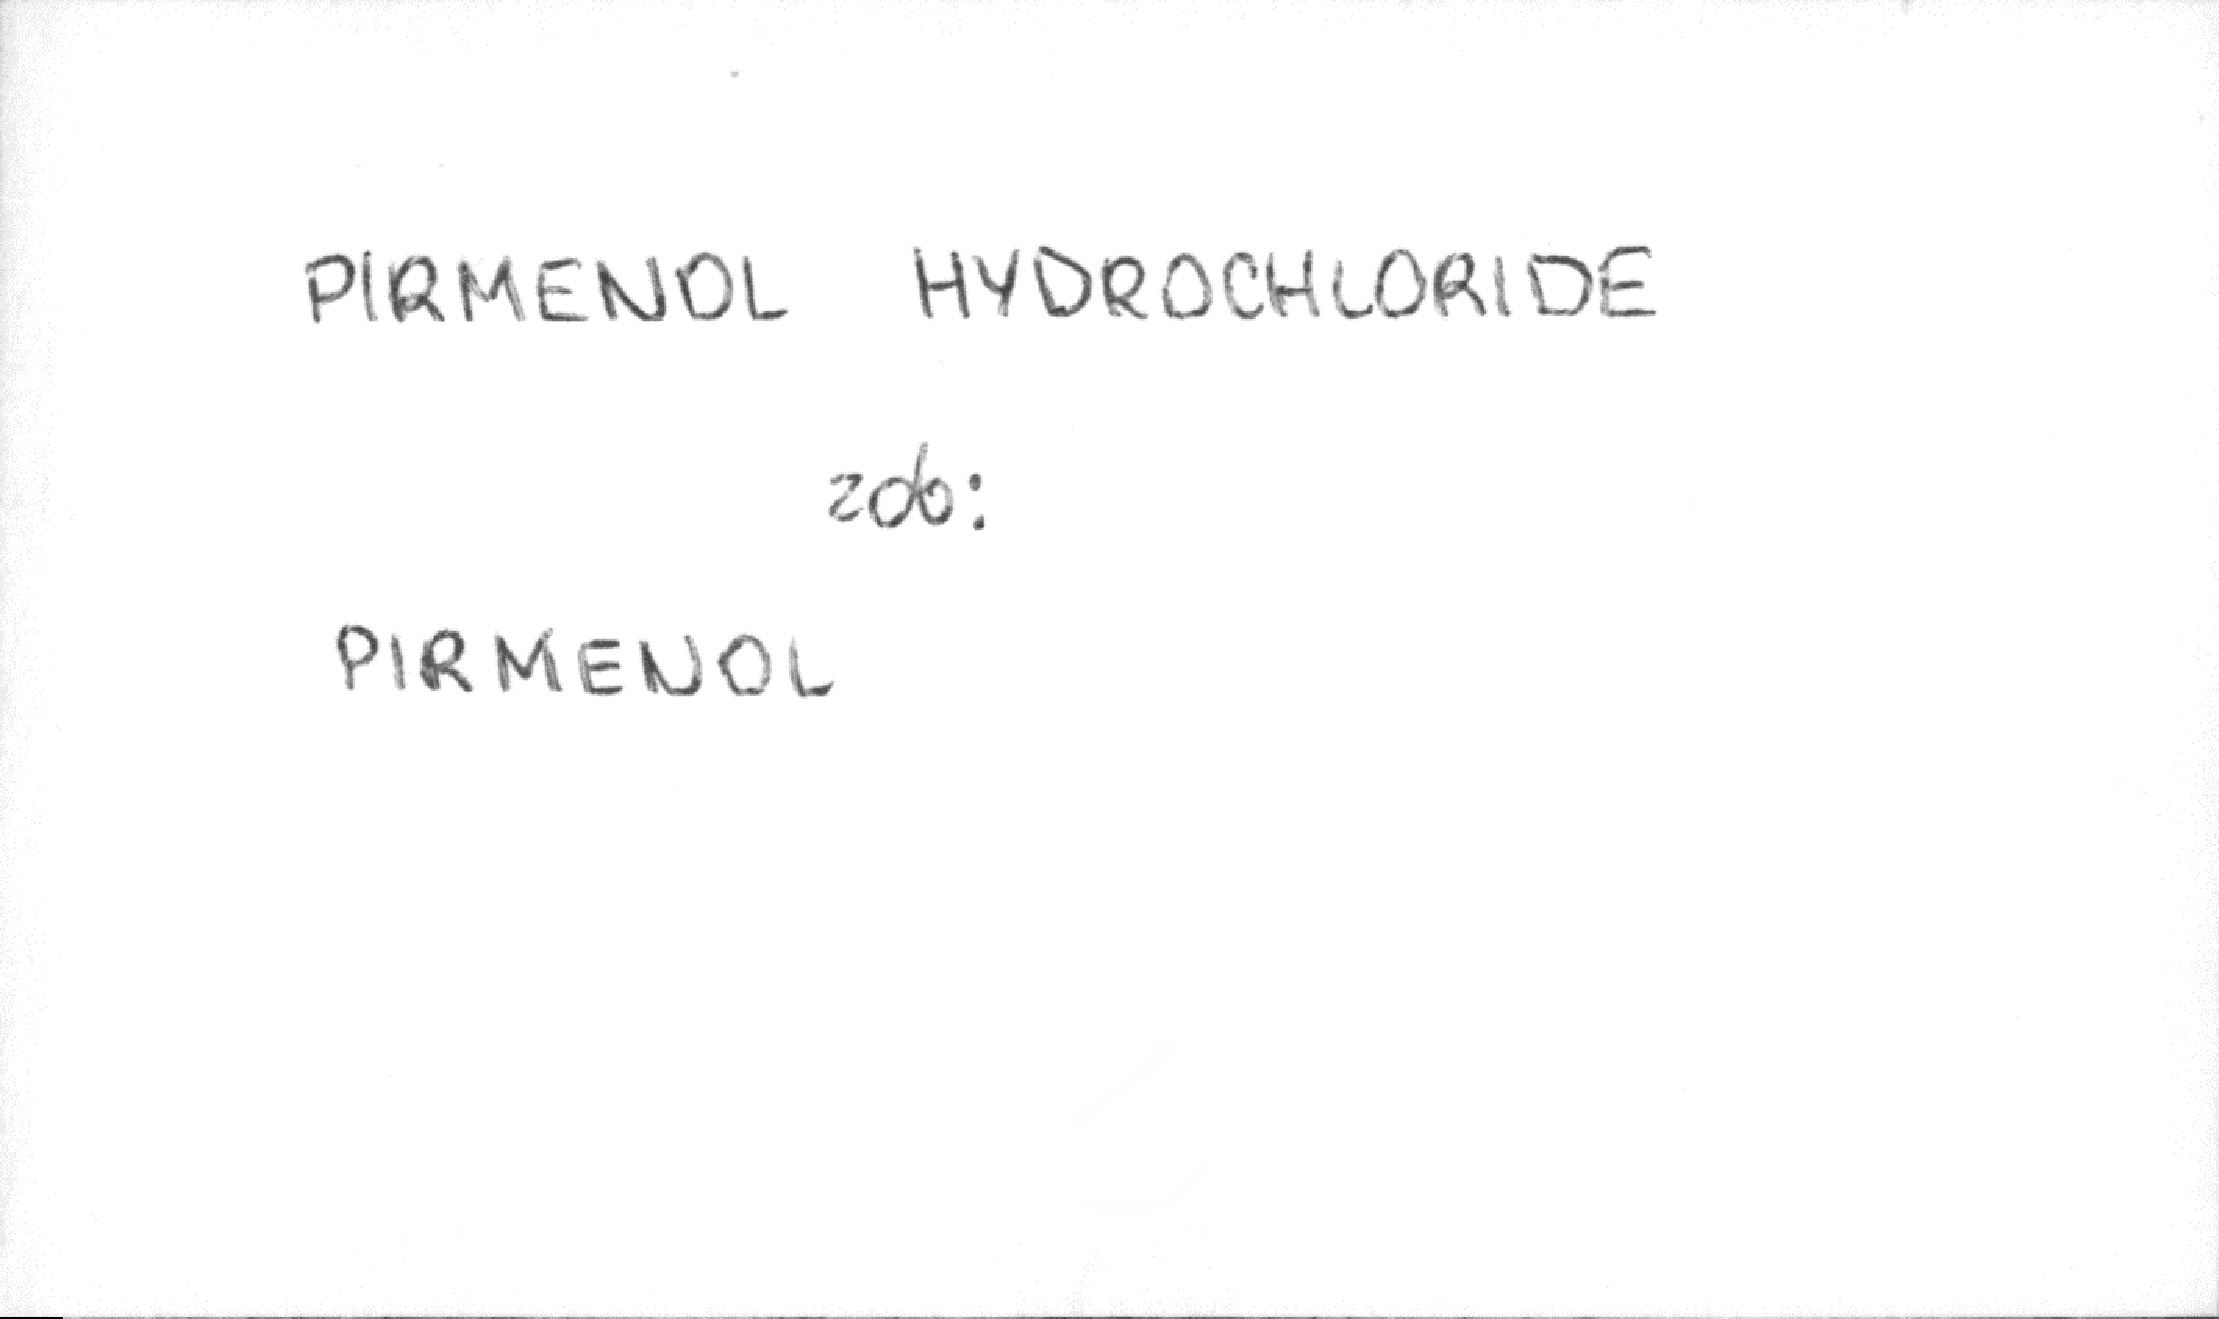 PIRMENOL HYDROCHLORIDE
zob:
PIRMENOL